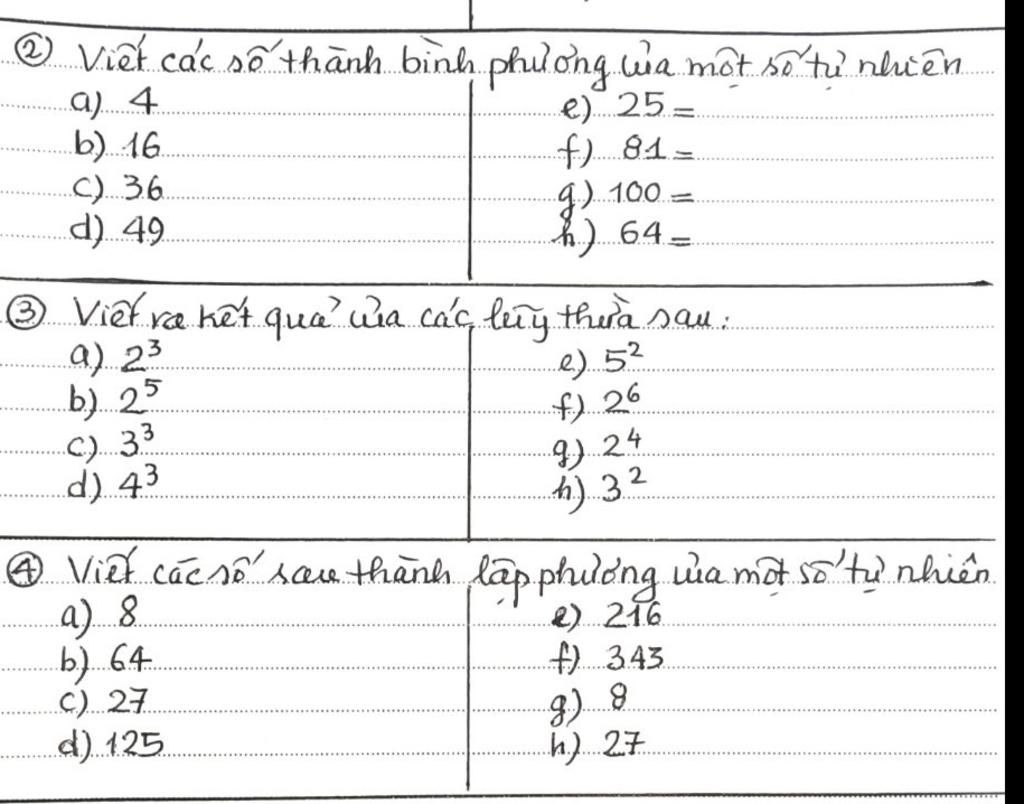 ② Viết các số thành bình phương của một số tự nhiên
a) 4
b) 16
c) 36
d) 49
e) 25 =
f) 81 =
g) 100 =
h) 64 =
③ Viết ra kết quả của các lũy thừa sau:
a) 2³
b) 2⁵
c) 3³
d) 4³
e) 5²
f) 2⁶
g) 2⁴
h) 3²
④ Viết các số sau thành lập phương của một số tự nhiên
a) 8
b) 64
c) 27
d) 125
e) 216
f) 343
g) 8
h) 27